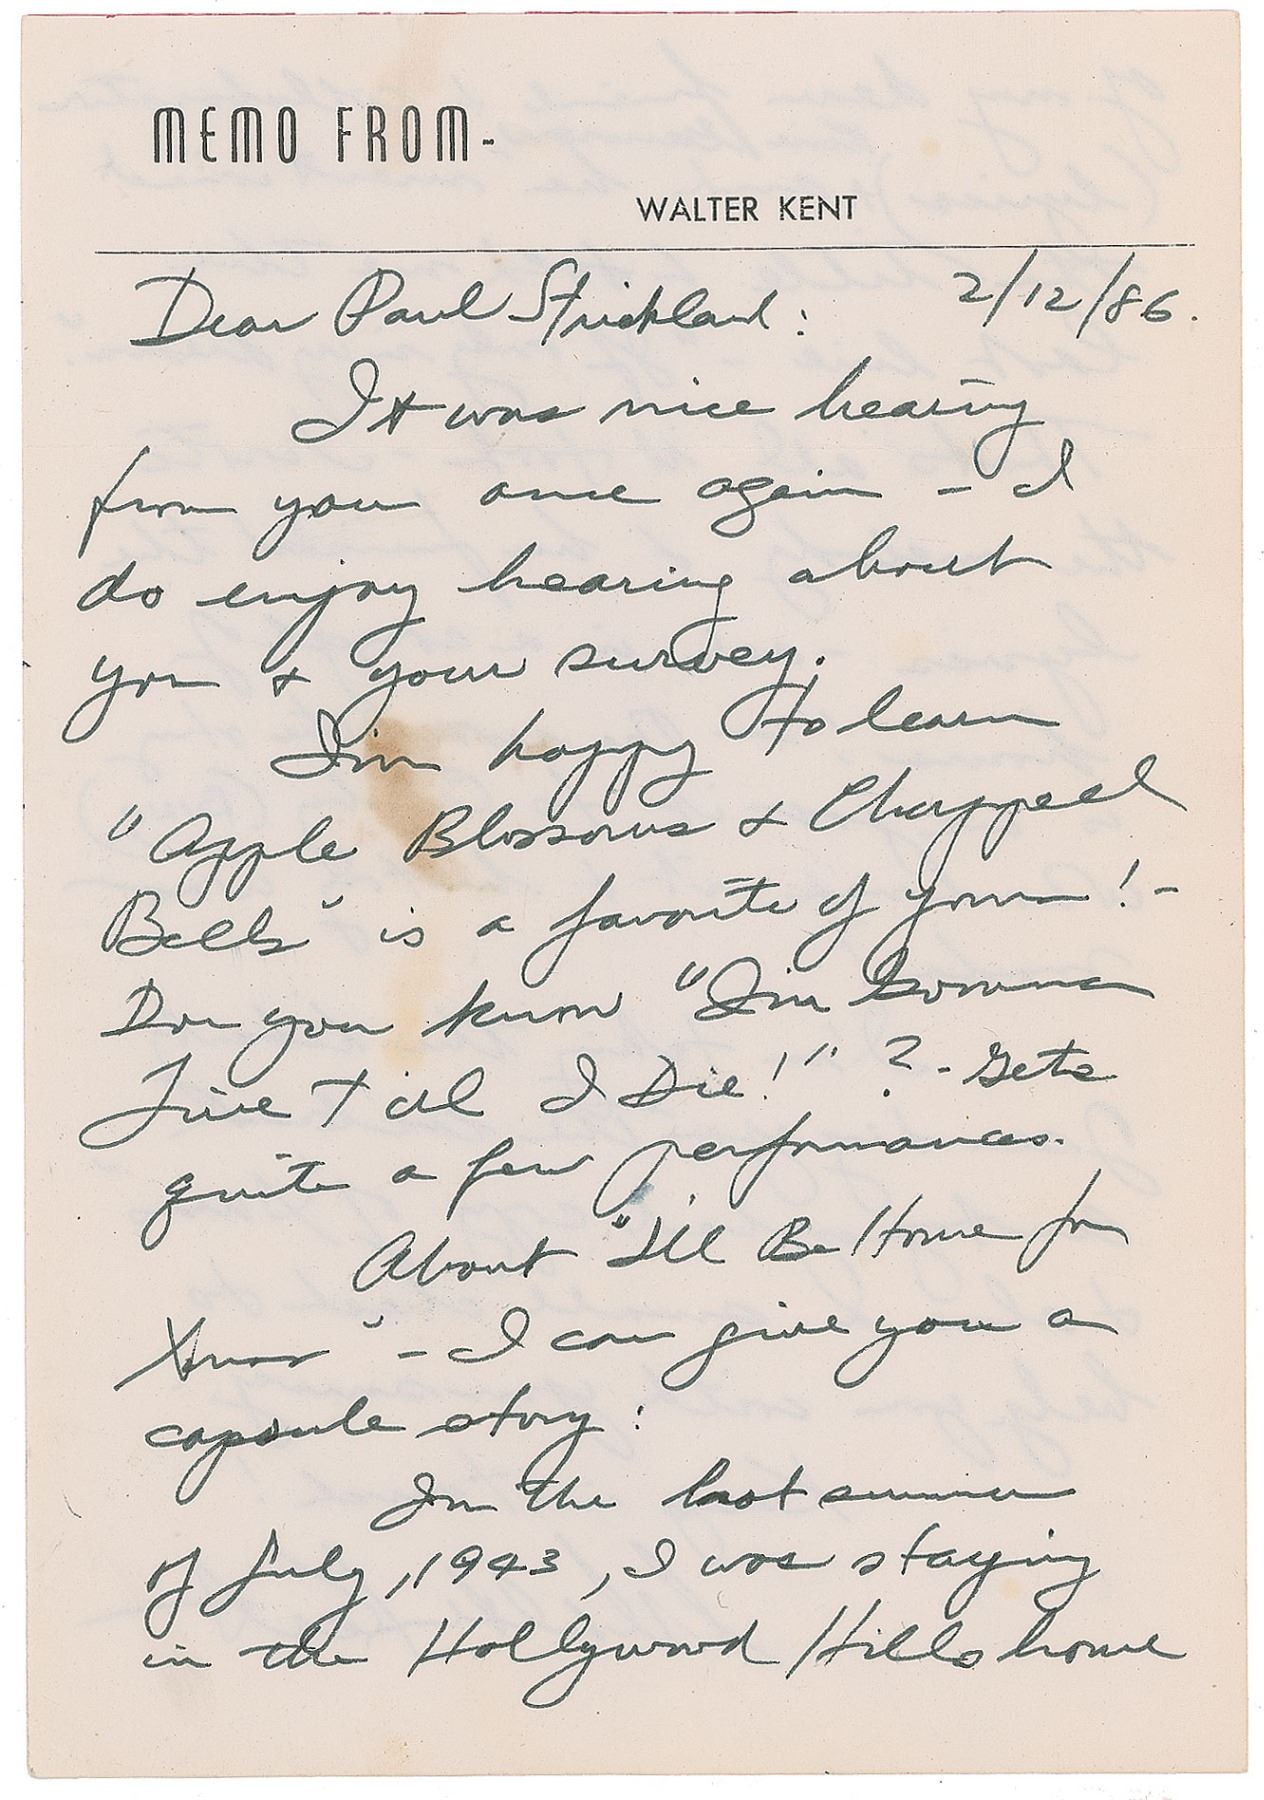 MEMO FROM-
WALTER KENT
Dear Paul Strickland: 2/12/86.
It was nice hearing
from you once again - I
do enjoy hearing about
you & your survey.
I'm happy to learn
"Apple Blossoms & Chappel
Bells" is a favorite of yours! -
Do you know "I'm Gonna
Live T'ill I Die!" ? - Gets
quite a few performances.
About "I'll Be Home for
Xmas" - I can give you a
capsule story:
In the hot summer
of July, 1943, I was staying
in the Hollywood Hills home